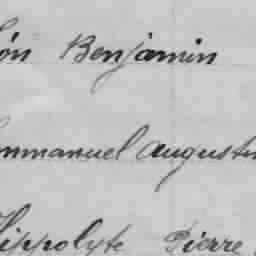 Léon Benjamin
Emmanuel Augustin
Hippolyte Pierre